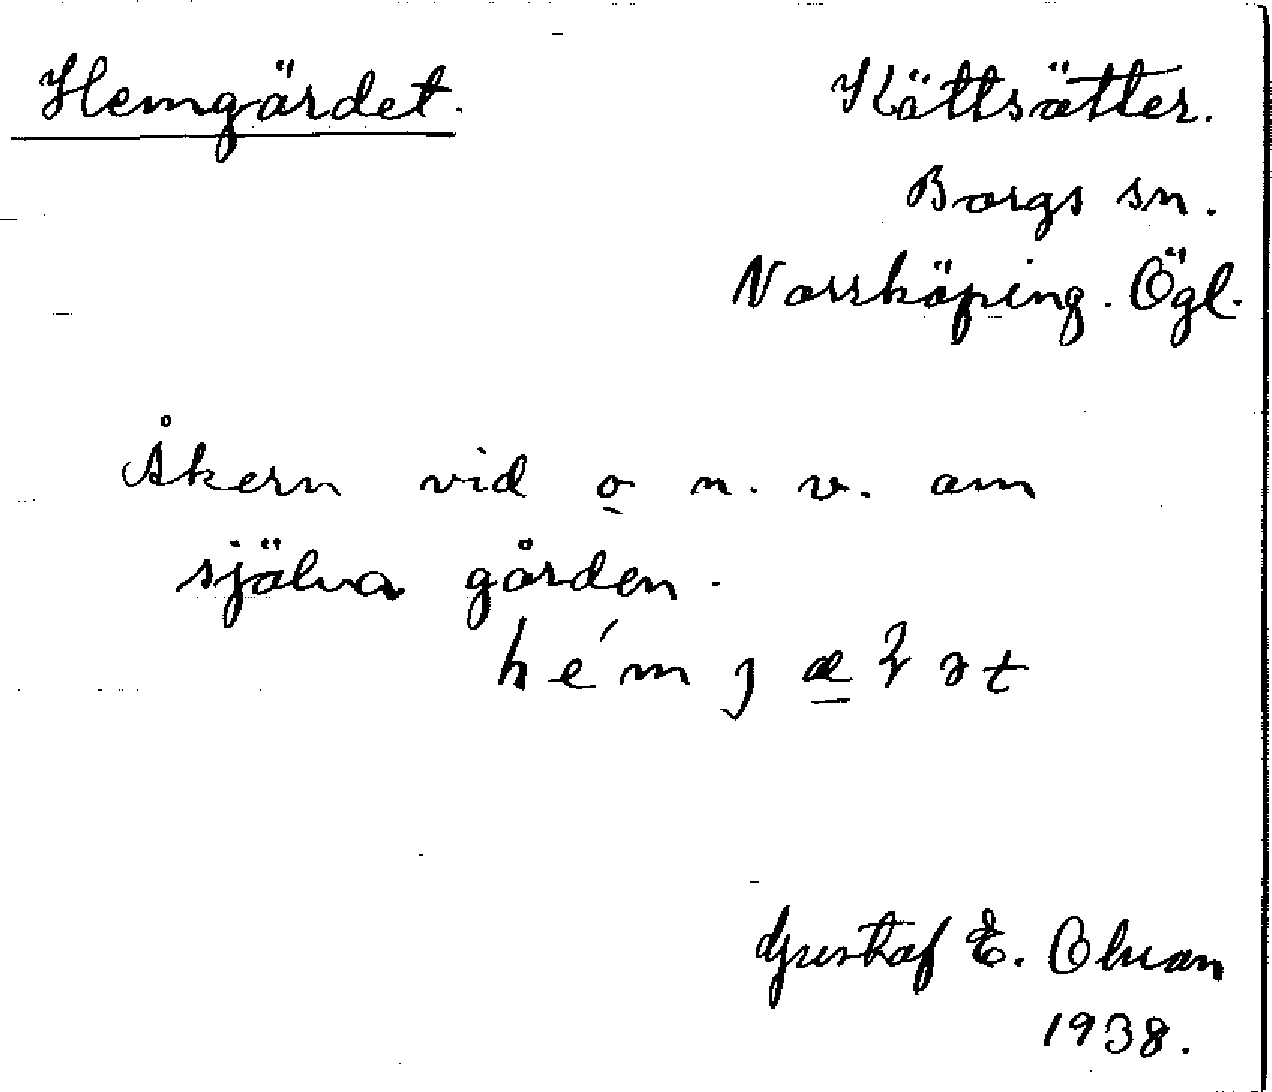 Hemgärdet. Köttsätter.
Borgs sn.
Norrköping. Ögl.
Åkern vid o n. v. om
själva gården.
Gustaf E.
1938.